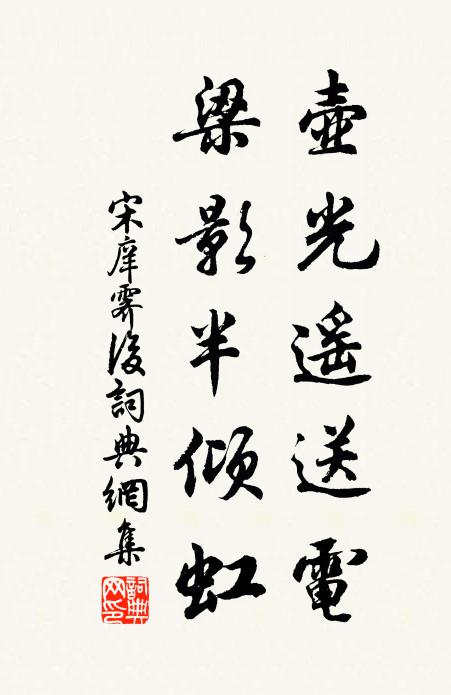 壺光遥送電
梁影半傾虹
宋庠霽後詞典網集
詞典網印